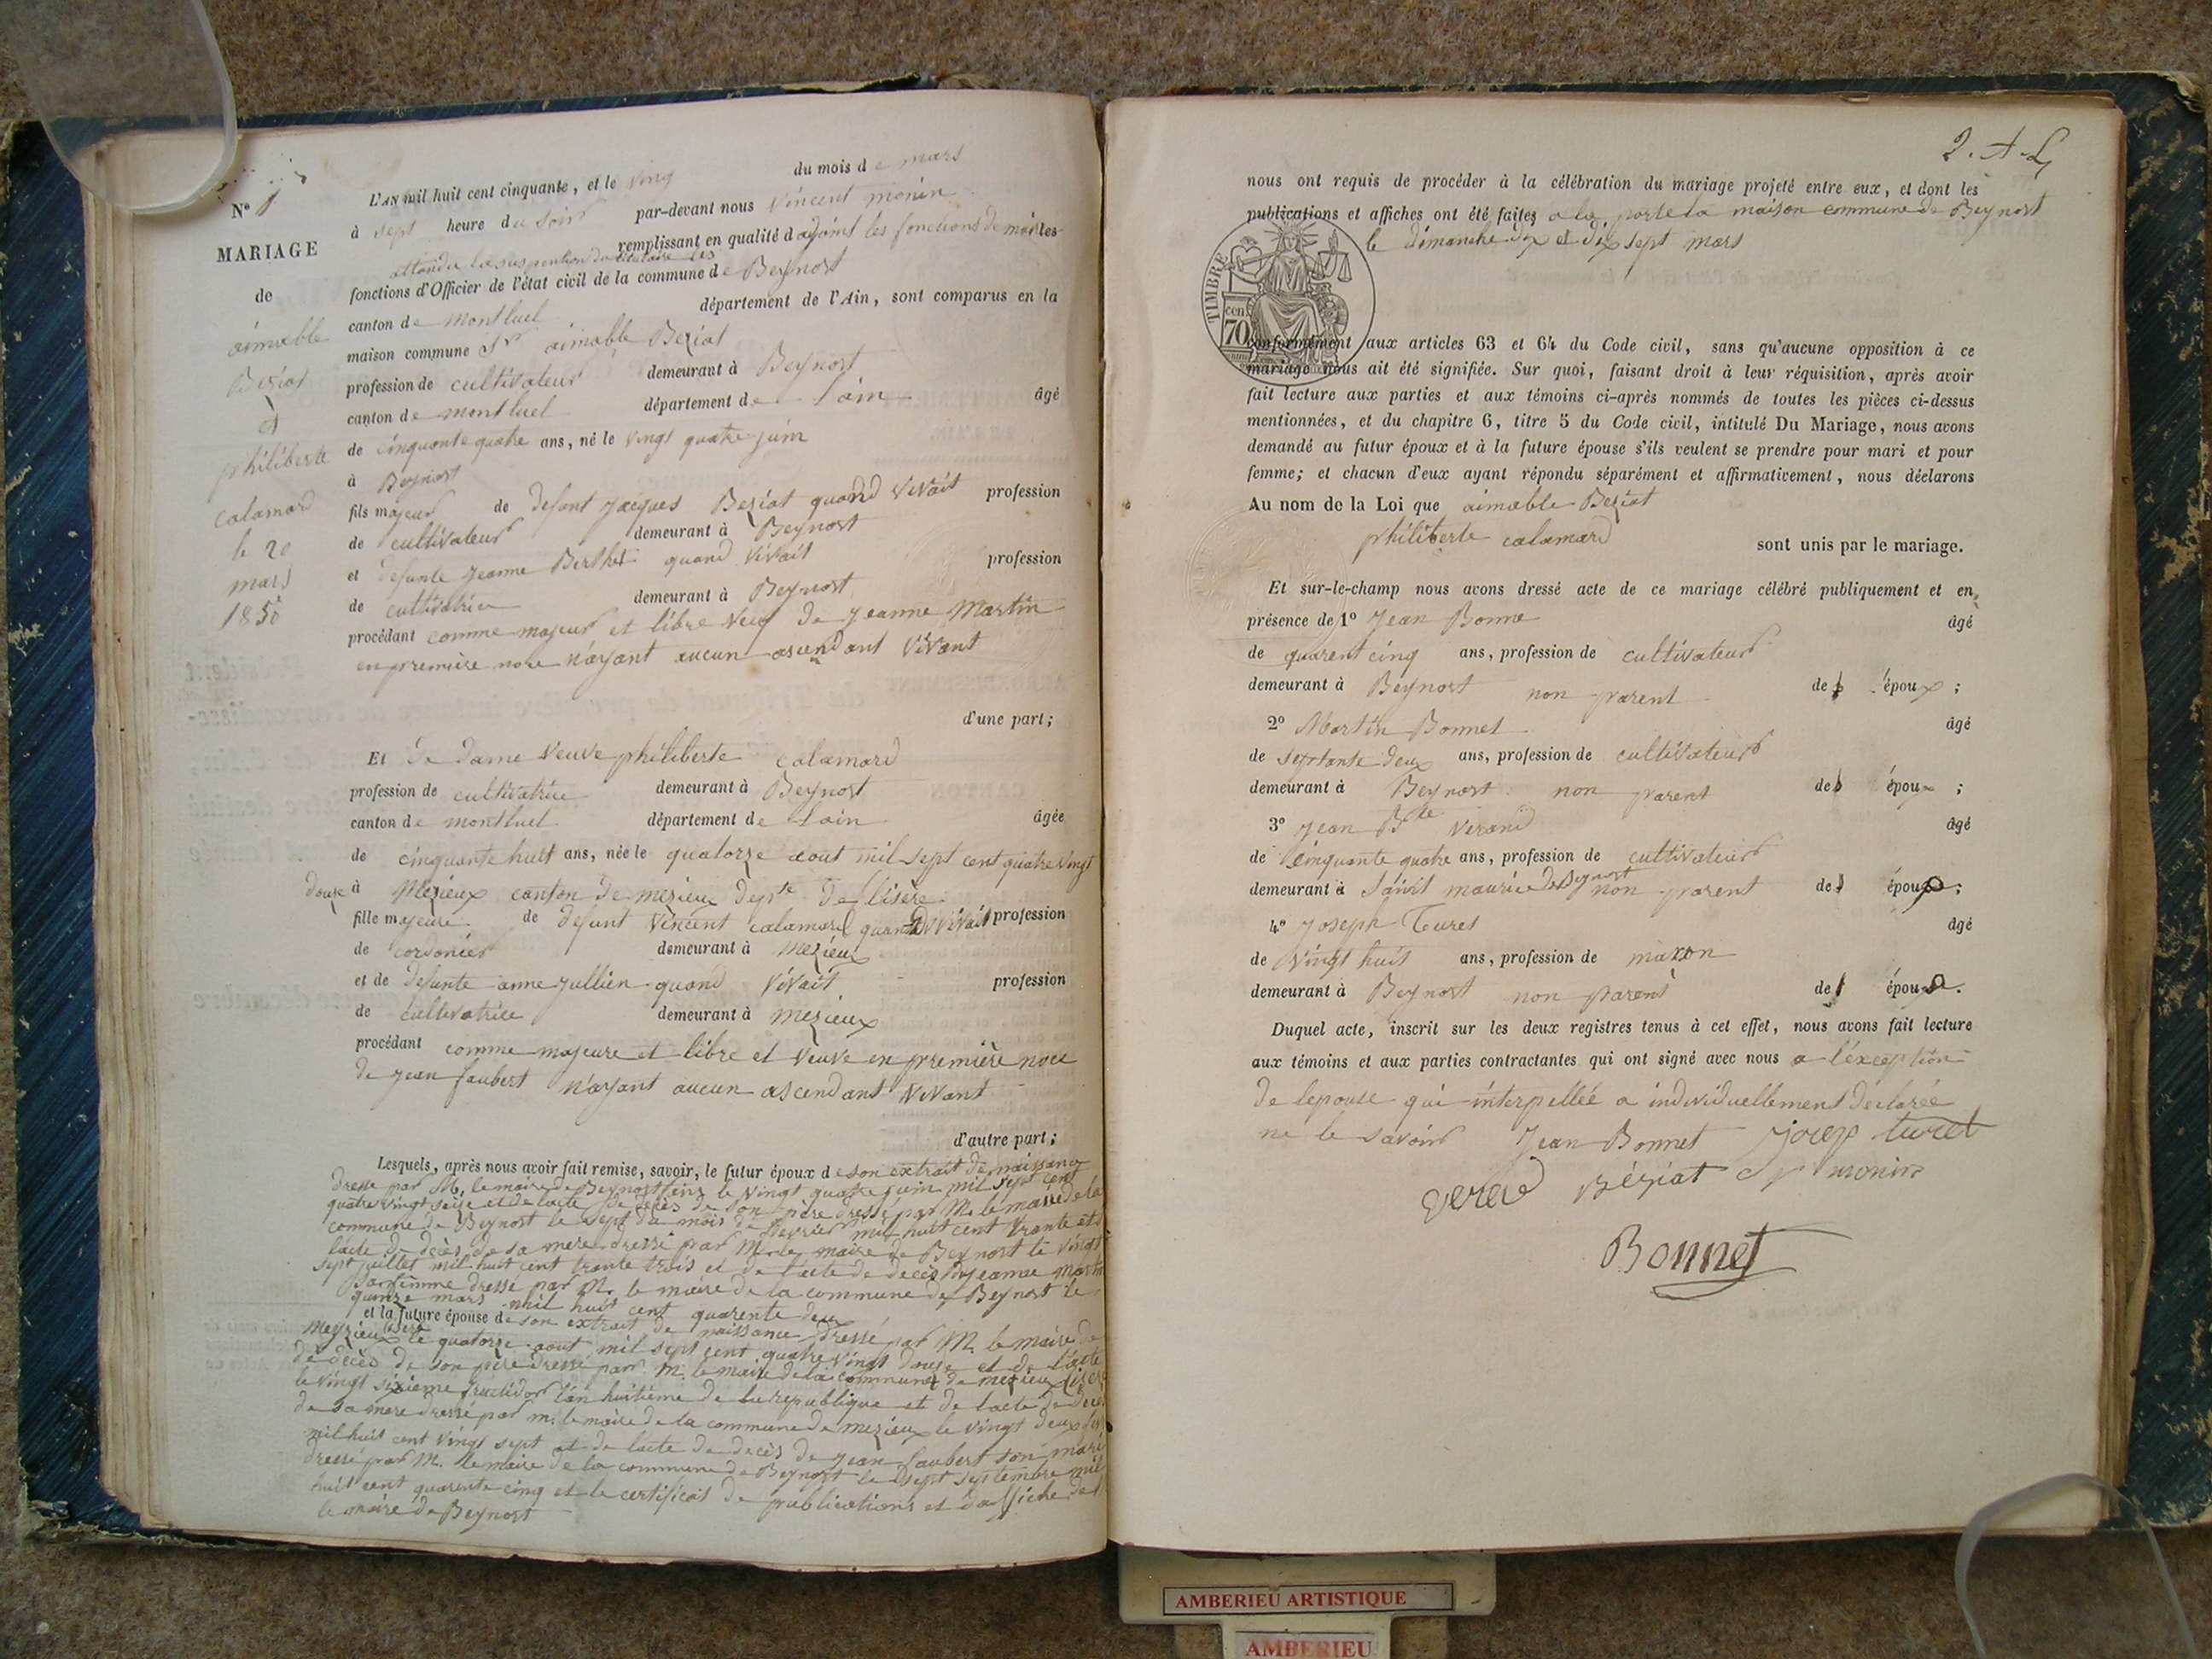 N° 1
MARIAGE
de
aimable
Beziat
et
philiberte
calamard
le 20
mars
1850
L'AN mil huit cent cinquante, et le Ving du mois de mars
à sept heure du soir par-devant nous Vincent monin
remplissant en qualité d'adjoint les fonctions de maire les
attendu la suspention du titulaire les
fonctions d'Officier de l'état civil de la commune de Beynost
canton de montluel département de l'Ain, sont comparus en la
maison commune Sr aimable Beziat
profession de cultivateur demeurant à Beynost
canton de montluel département de l'ain âgé
de cinquante quatre ans, né le vingt quatre juin
à Beynost
fils majeur de defunt Jacques Beziat quand vivait profession
de cultivateur demeurant à Beynost
et defunte Jeanne Berthet quand vivait profession
de cultivatrice demeurant à Beynost
procédant comme majeur et libre veuf de Jeanne Martin
en première noce n'ayant aucun ascendant vivant
d'une part;
Et de dame veuve philiberte calamard
profession de cultivatrice demeurant à Beynost
canton de montluel département de lain âgée
de cinquante huit ans, née le quatorze aout mil sept cent quatre vingt
douze à Mezieux canton de mezieux depte de l'isère
fille majeure de defunt Vincent calamard quand vivait profession
de cordonier demeurant à mezieux
et de defunte anne Jullien quand vivait profession
de cultivatrice demeurant à mezieux
procédant comme majeure et libre et veuve en première noce
de Jean Jaubert n'ayant aucun ascendant vivant
d'autre part;
Lesquels, après nous avoir fait remise, savoir, le futur époux de son extrait de naissance
dressé par M. le maire de Beynost le vingt quatre juin mil sept cent
quatre vingt seize et de lacte de décès de son père dressé par M. le maire de la
commune de Beynost le sept du mois de fevrier mil huit cent trante et
l'acte de décès de sa mere dressé par M. le maire de Beynost le vingt
sept juillet mil huit cent trante trois et de l'acte de decès de Jeanne Martin
sa femme dressé par M. le maire de la commune de Beynost le
quinze mars mil huit cent quarente deux
et la future épouse de son extrait de naissance dressé par M. le maire de
Meyzieux isère le quatorze aout mil sept cent quatre vingt douze et de l'acte
de décès de son père dressé par M. le maire de la commune de mezieux isère
le vingt sixieme fructidor l'an huitième de la republique et de lacte de décès
de sa mere dressé par m. le maire de la commune de mezieux le vingt deux
mil huit cent vingt sept et de lacte de decès de Jean Jaubert son mari
dressé par M. le maire de la commune de Beynost le sept septembre mil
huit cent quarente cinq et le certificat de publications et d'affiche de
le maire de Beynost
2. A. L
nous ont requis de procéder à la célébration du mariage projeté entre eux, et dont les
publications et affiches ont été faites a la porte la maison commune de Beynost
le dimanche dix et dix sept mars
TIMBRE
cent
70
conformément aux articles 63 et 64 du Code civil, sans qu'aucune opposition à ce
mariage nous ait été signifiée. Sur quoi, faisant droit à leur réquisition, après avoir
fait lecture aux parties et aux témoins ci-après nommés de toutes les pièces ci-dessus
mentionnées, et du chapitre 6, titre 5 du Code civil, intitulé Du Mariage, nous avons
demandé au futur époux et à la future épouse s'ils veulent se prendre pour mari et pour
femme; et chacun d'eux ayant répondu séparément et affirmativement, nous déclarons
Au nom de la Loi que aimable Beziat
philiberte calamard sont unis par le mariage.
Et sur-le-champ nous avons dressé acte de ce mariage célébré publiquement et en
présence de 1° Jean Bonne âgé
de quarent cinq ans, profession de cultivateur
demeurant à Beynost non parent de l'époux;
2° Martin Bonnet âgé
de septante deux ans, profession de cultivateur
demeurant à Beynost non parent de époux;
3° Jean Bte Verand âgé
de cinquante quatre ans, profession de cultivateur
demeurant à Saint maurice de Beynost non parent de épouse;
4° Joseph Teuret âgé
de vingt huit ans, profession de maxon
demeurant à Beynost non parent de épouse.
Duquel acte, inscrit sur les deux registres tenus à cet effet, nous avons fait lecture
aux témoins et aux parties contractantes qui ont signé avec nous a l'éxception
de lepouse qui interpellée a individuellement declarée
ne le savoir Jean Bonnet Joezp turet
Verad Béziat V monin
Bonnet
AMBERIEU ARTISTIQUE
AMBERIEU